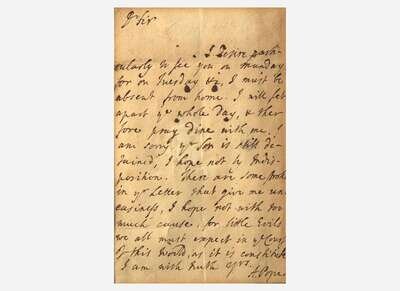 Dr Sir
I desire parti-
cularly to see you on munday
for on Tuesday &c, I must be
absent from home. I will set
apart ye whole day, & ther
fore pray dine with me. I
am sorry yr Son is still de-
tained, I hope not by Indis-
position. There are some
in yr Letter that give me un-
easiness, I hope not with too
much cause, for little Evils
we all must expect in ye Cours
of this World, as it is constitute
I am with truth yrs.
A. Pope